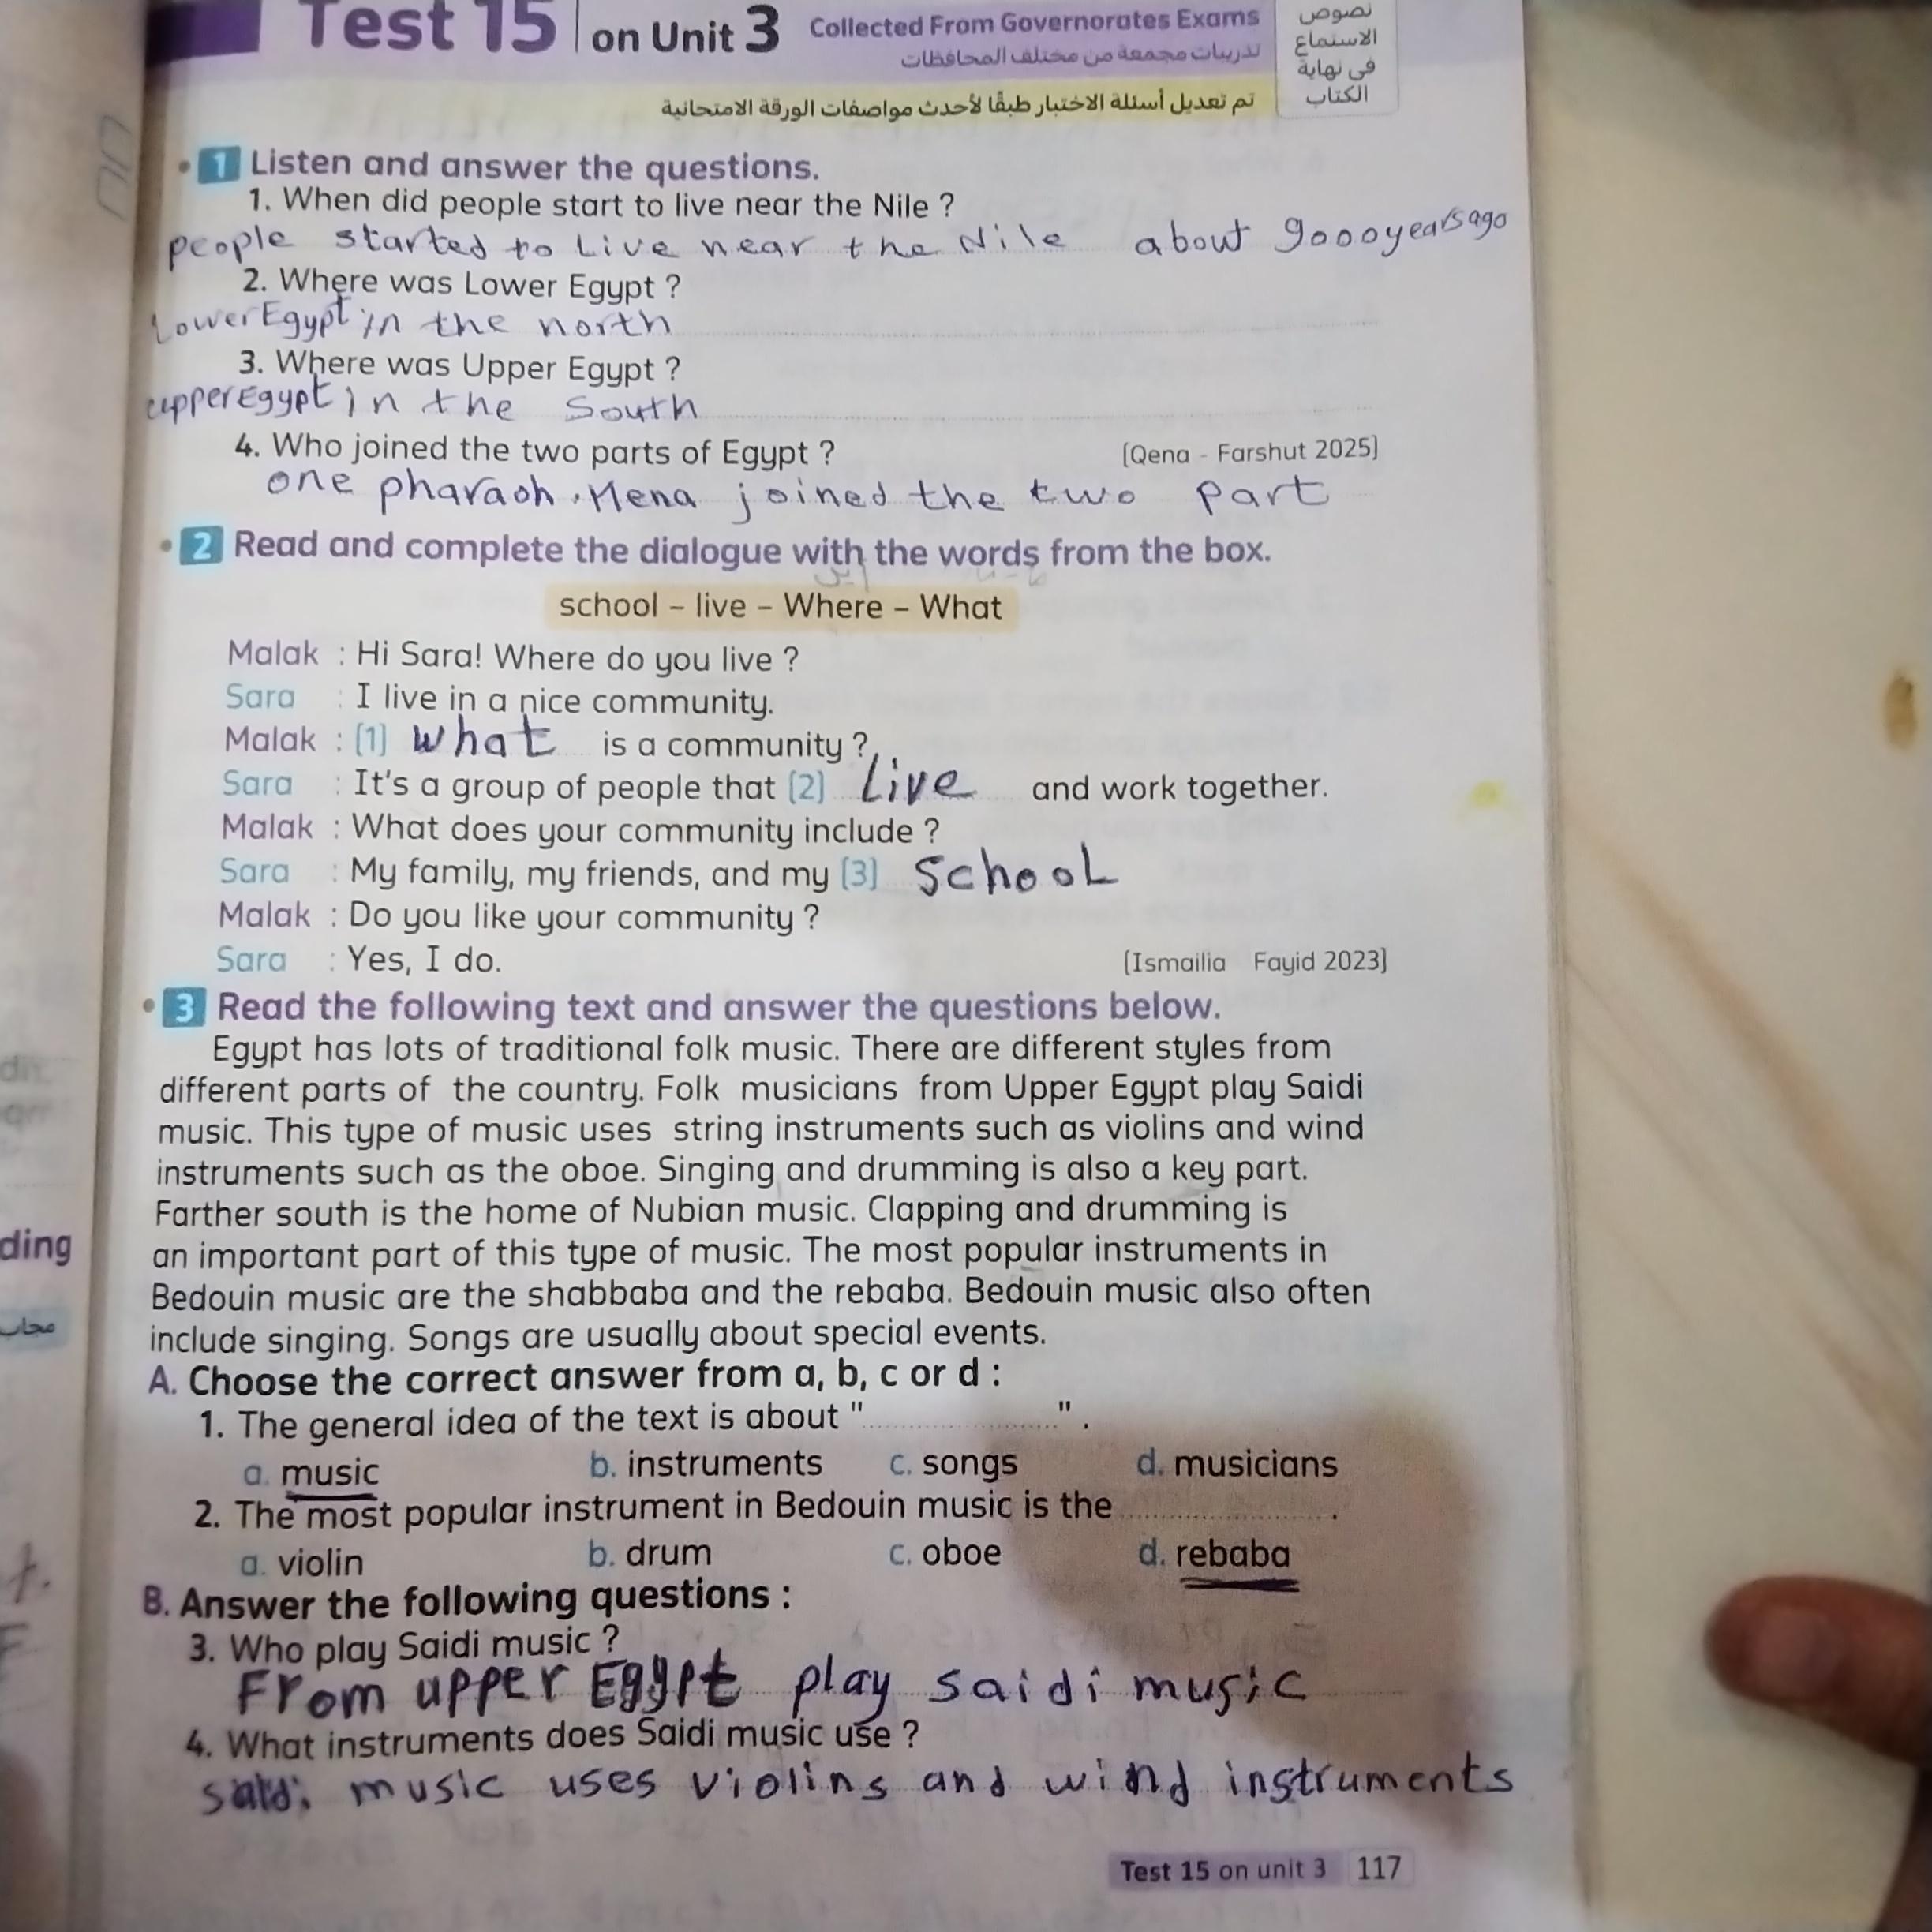 Test 15 on Unit 3 Collected From Governorates Exams
تدريبات مجمعة من مختلف المحافظات
نصوص
الاستماع
فى نهاية
الكتاب
تم تعديل أسئلة الاختبار طبقًا لأحدث مواصفات الورقة الامتحانية
1 Listen and answer the questions.
1. When did people start to live near the Nile ?
people started to Live near the Nile about 9000 years ago
2. Where was Lower Egypt ?
Lower Egypt in the north
3. Where was Upper Egypt ?
upper Egypt in the South
4. Who joined the two parts of Egypt ? (Qena - Farshut 2025)
one pharaoh, Mena joined the two part
2 Read and complete the dialogue with the words from the box.
school – live – Where – What
Malak : Hi Sara! Where do you live ?
Sara : I live in a nice community.
Malak : (1) what is a community ?
Sara : It's a group of people that (2) Live and work together.
Malak : What does your community include ?
Sara : My family, my friends, and my (3) School
Malak : Do you like your community ?
Sara : Yes, I do. (Ismailia Fayid 2023)
3 Read the following text and answer the questions below.
Egypt has lots of traditional folk music. There are different styles from
different parts of the country. Folk musicians from Upper Egypt play Saidi
music. This type of music uses string instruments such as violins and wind
instruments such as the oboe. Singing and drumming is also a key part.
Farther south is the home of Nubian music. Clapping and drumming is
an important part of this type of music. The most popular instruments in
Bedouin music are the shabbaba and the rebaba. Bedouin music also often
include singing. Songs are usually about special events.
A. Choose the correct answer from a, b, c or d :
1. The general idea of the text is about "....................".
a. music b. instruments c. songs d. musicians
2. The most popular instrument in Bedouin music is the ....................
a. violin b. drum c. oboe d. rebaba
B. Answer the following questions :
3. Who play Saidi music ?
From upper Egypt play saidi music
4. What instruments does Saidi music use ?
saidi music uses violins and wind instruments
Test 15 on unit 3 117
ding